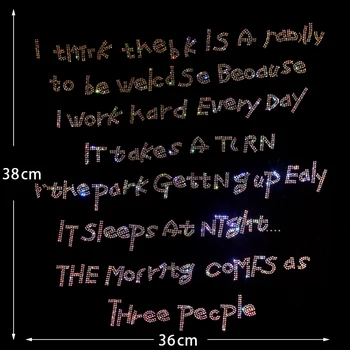 I think thebk IS A rainlly
to be welcdse Because
I work hard Every Day
IT takes A TURN
rthepark GettNg up Ealy
IT Sleeps At NIght...
THE Morritg COMFS as
Three People
38cm
36cm